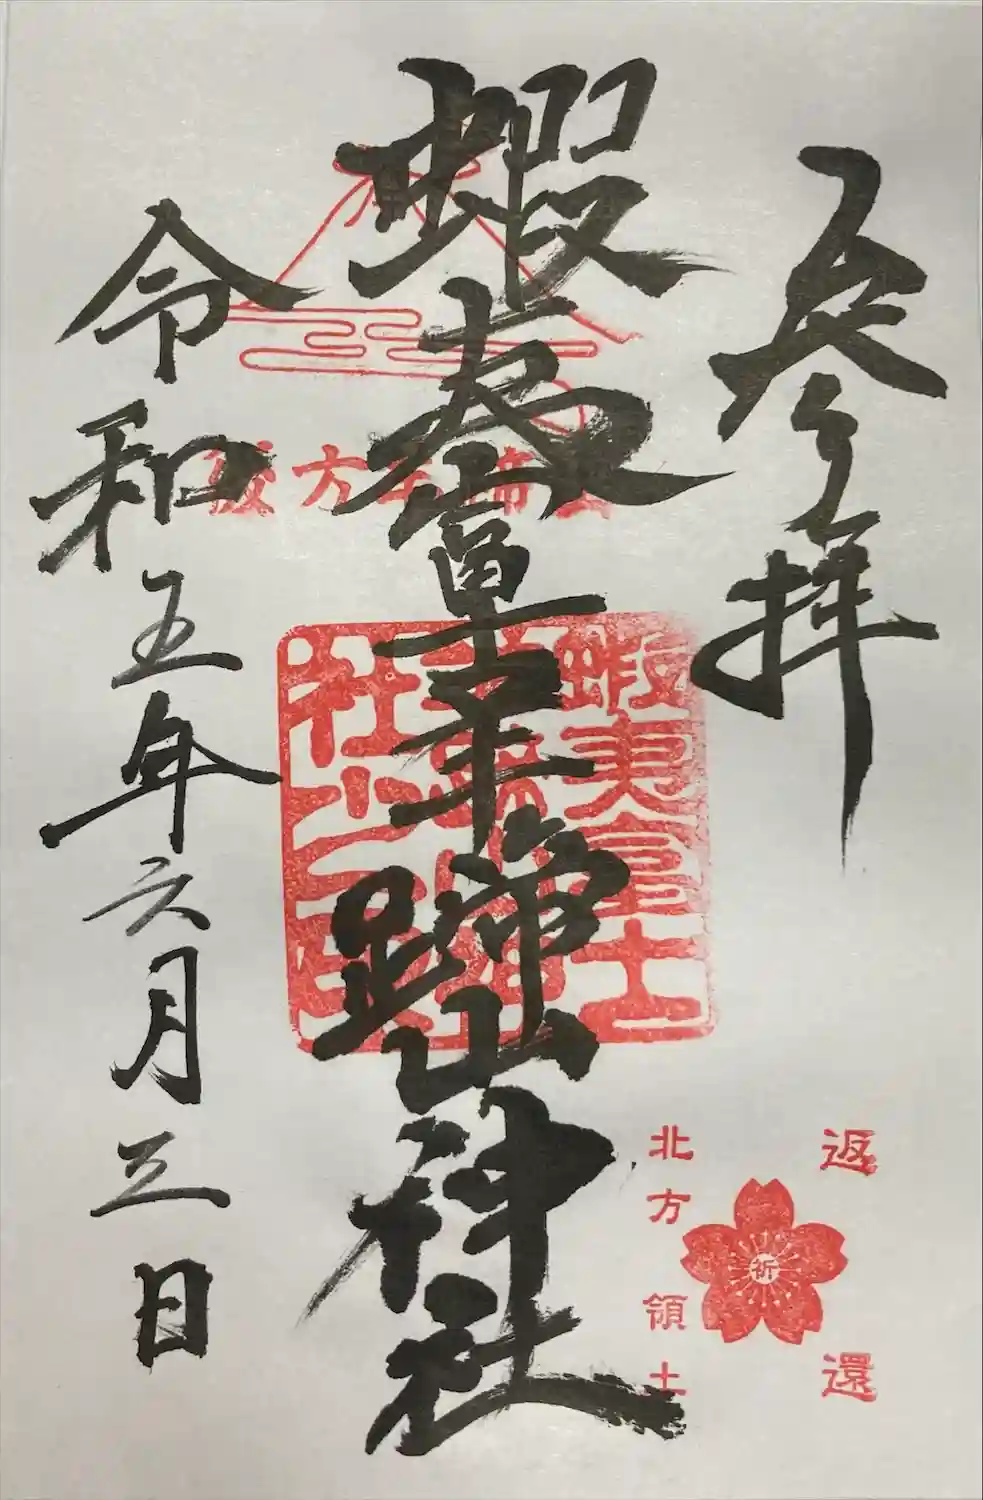 参拝
蝦夷富士羊蹄山神社
令和五年六月三日
後方羊蹄山
蝦夷富士
羊蹄山神
社之印
北方領土
返還
祈